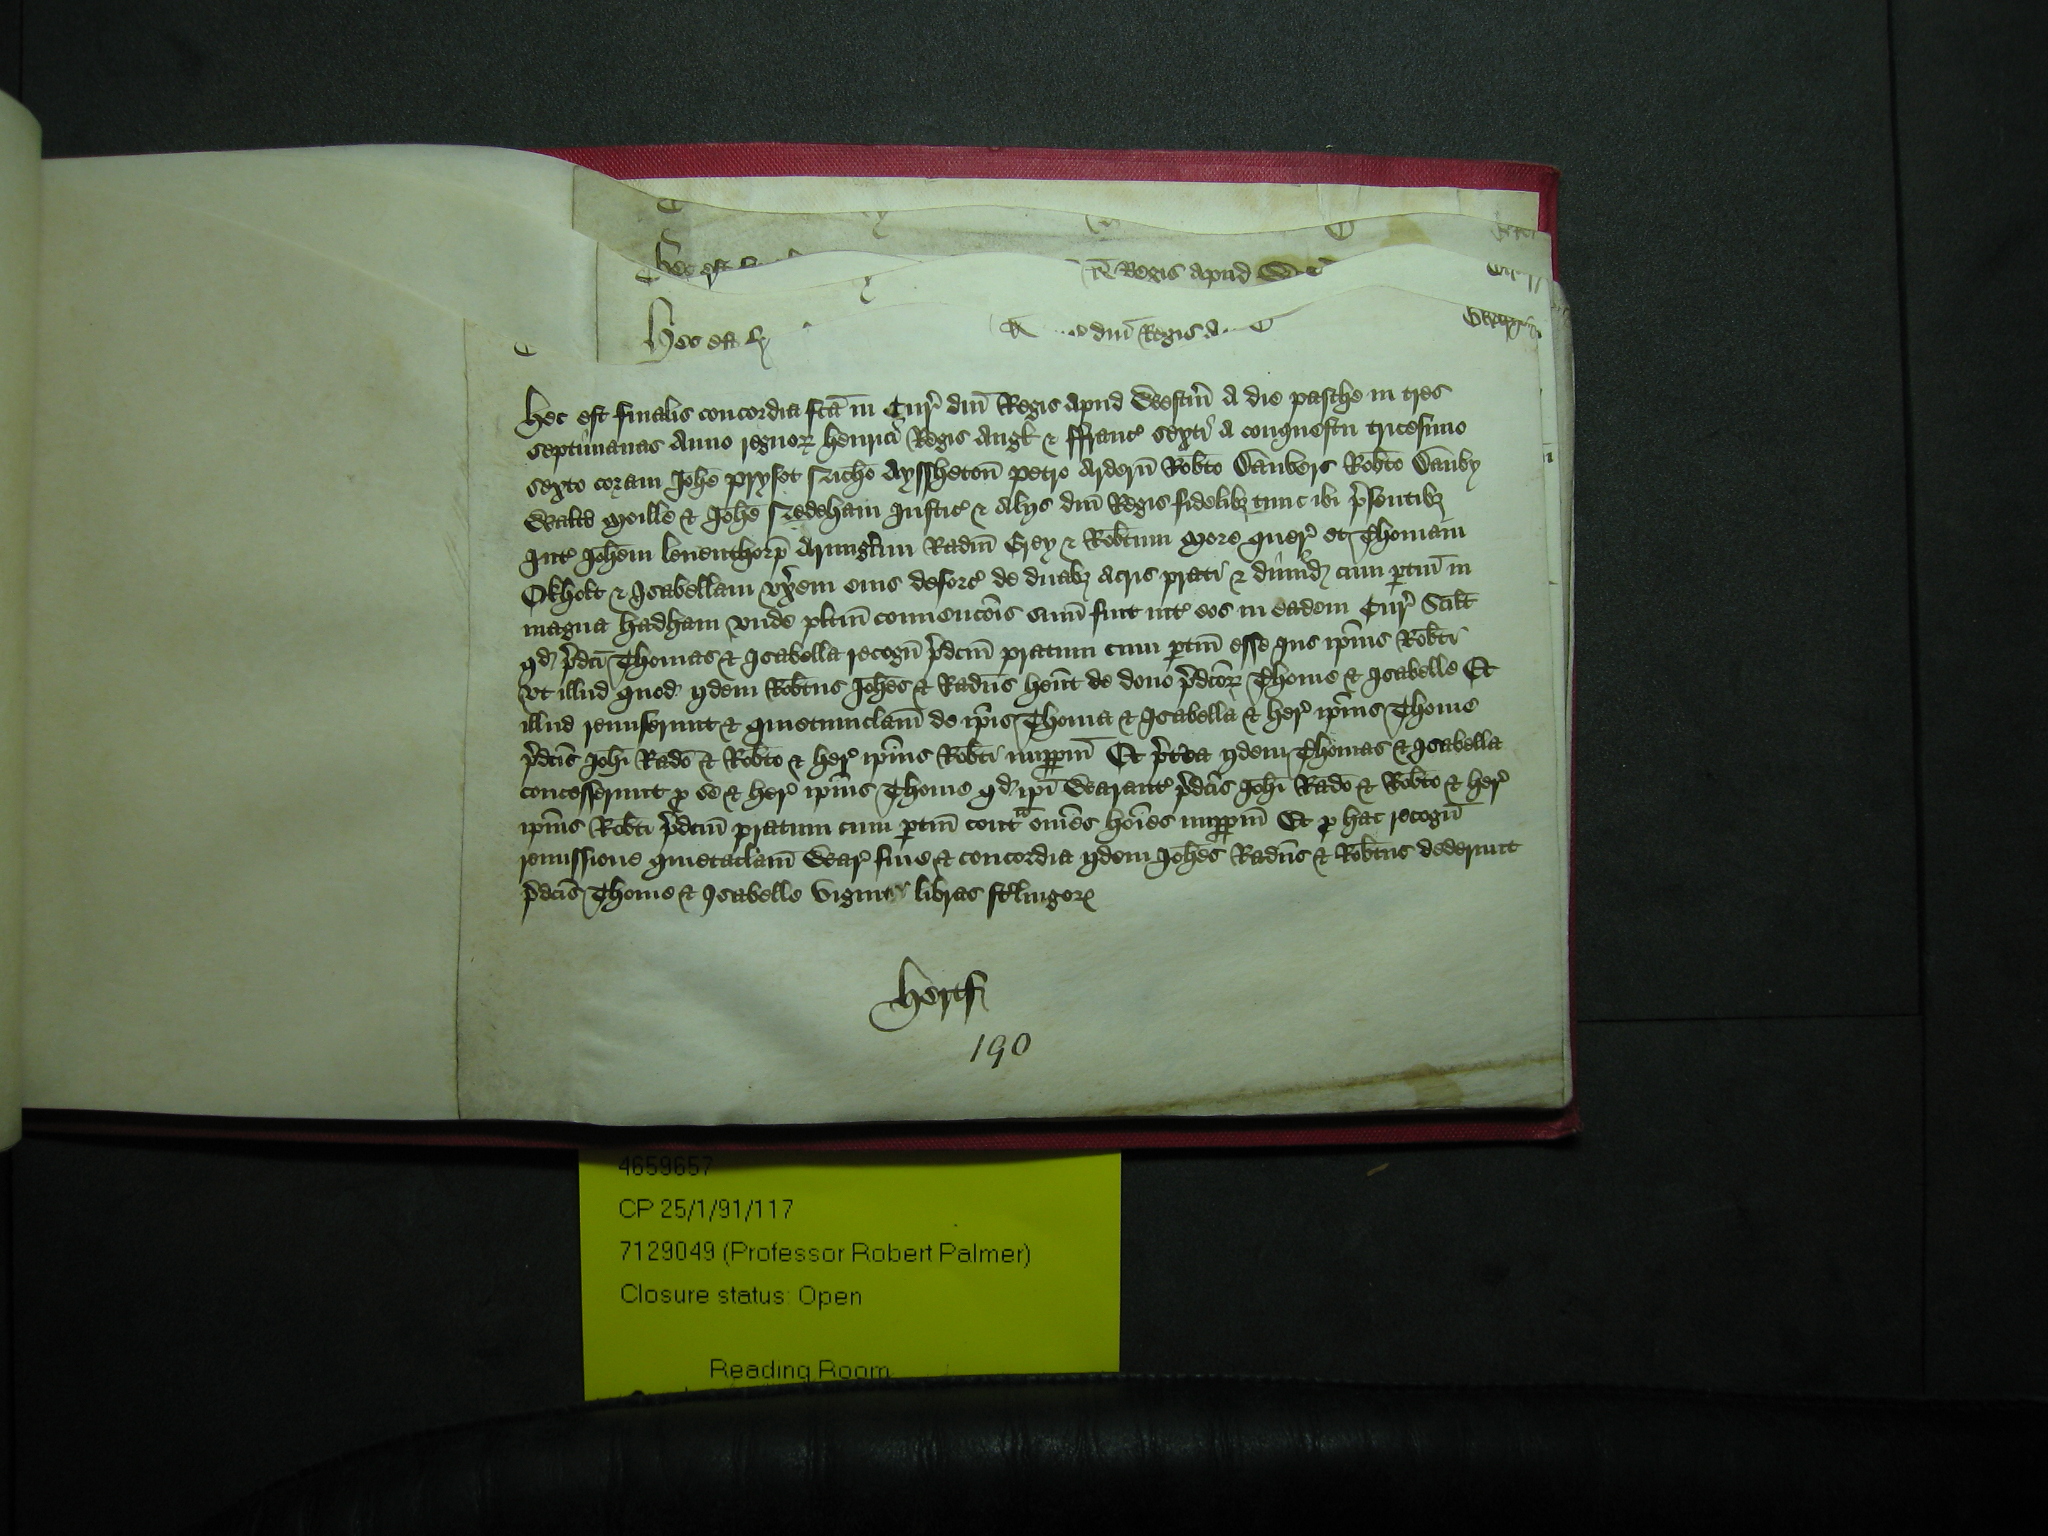 Hec est finalis concordia fcā in Cur̃ dnī Regis apud Westm̃ A die pasche in tres
septimanas Anno regnoꝝ Henrici Regis Angł & ffranc̃ sexti a conquestu tricesimo
sexto coram Johē Prysot Nichō Ayssheton̄ Petro Ardern̄ Rob̄to Dānvers Rob̄to Dānby
Walt̃o Moille & Johē Nedeham Justic̃ & Alijs dnī Regis fidelibȝ tunc ibi p̃sentibȝ
Int̃ Joh̄em Leventhorp̄ Armigum̃ Radm̄ Grey & Rob̄tum More quer̃ et Thomam
Okholt & Isabellam vx̃em eius deforc̃ de duabȝ acris prati & dimid̃ cum p̱tiñ in
magna Hadham vnde pl̄itm̄ convencōis sum̄ fuit int̃ eos in eadem Cur̃ Scilt̃
qd̃ p̃dc̄i Thomas & Isabella recogn̄ p̃dcm̄ pratum cum p̱tiñ esse Jus ip̄ius Rob̄ti
vt illud quod ijdem Rob̄tus Joh̄es & Radūs hent̄ de dono p̃dcōꝝ Thome & Isabelle Et
illud remiserunt & quietumclam̄ de ip̄is Thoma & Isabella & her̃ ip̄ius Thome
p̃dcīs Joh̄i Radō & Rob̄to & her̃ ip̄ius Rob̄ti imp̱pm̄ Et p̃tea ijdem Thomas & Isabella
concesserunt ꝓ se & her̃ ip̄ius Thome qd̃ ip̄i Warant̃ p̃dcīs Joh̄i Radō & Rob̄to & her̃
ip̄ius Rob̄ti p̃dcm̄ pratum cum p̱tiñ contᵃ om̄es hōies imp̱pm̄ Et ꝓ hac recogn̄
remissione quietaclam̄ War̃ fine & concordia ijdem Joh̄es Radūs & Rob̄tus dederunt
p̃dcīs Thome & Isabelle viginti libras st̃lingoꝝ
Hertf
190
4659657
CP 25/1/91/117
7129049 (Professor Robert Palmer)
Closure status: Open
Reading Room